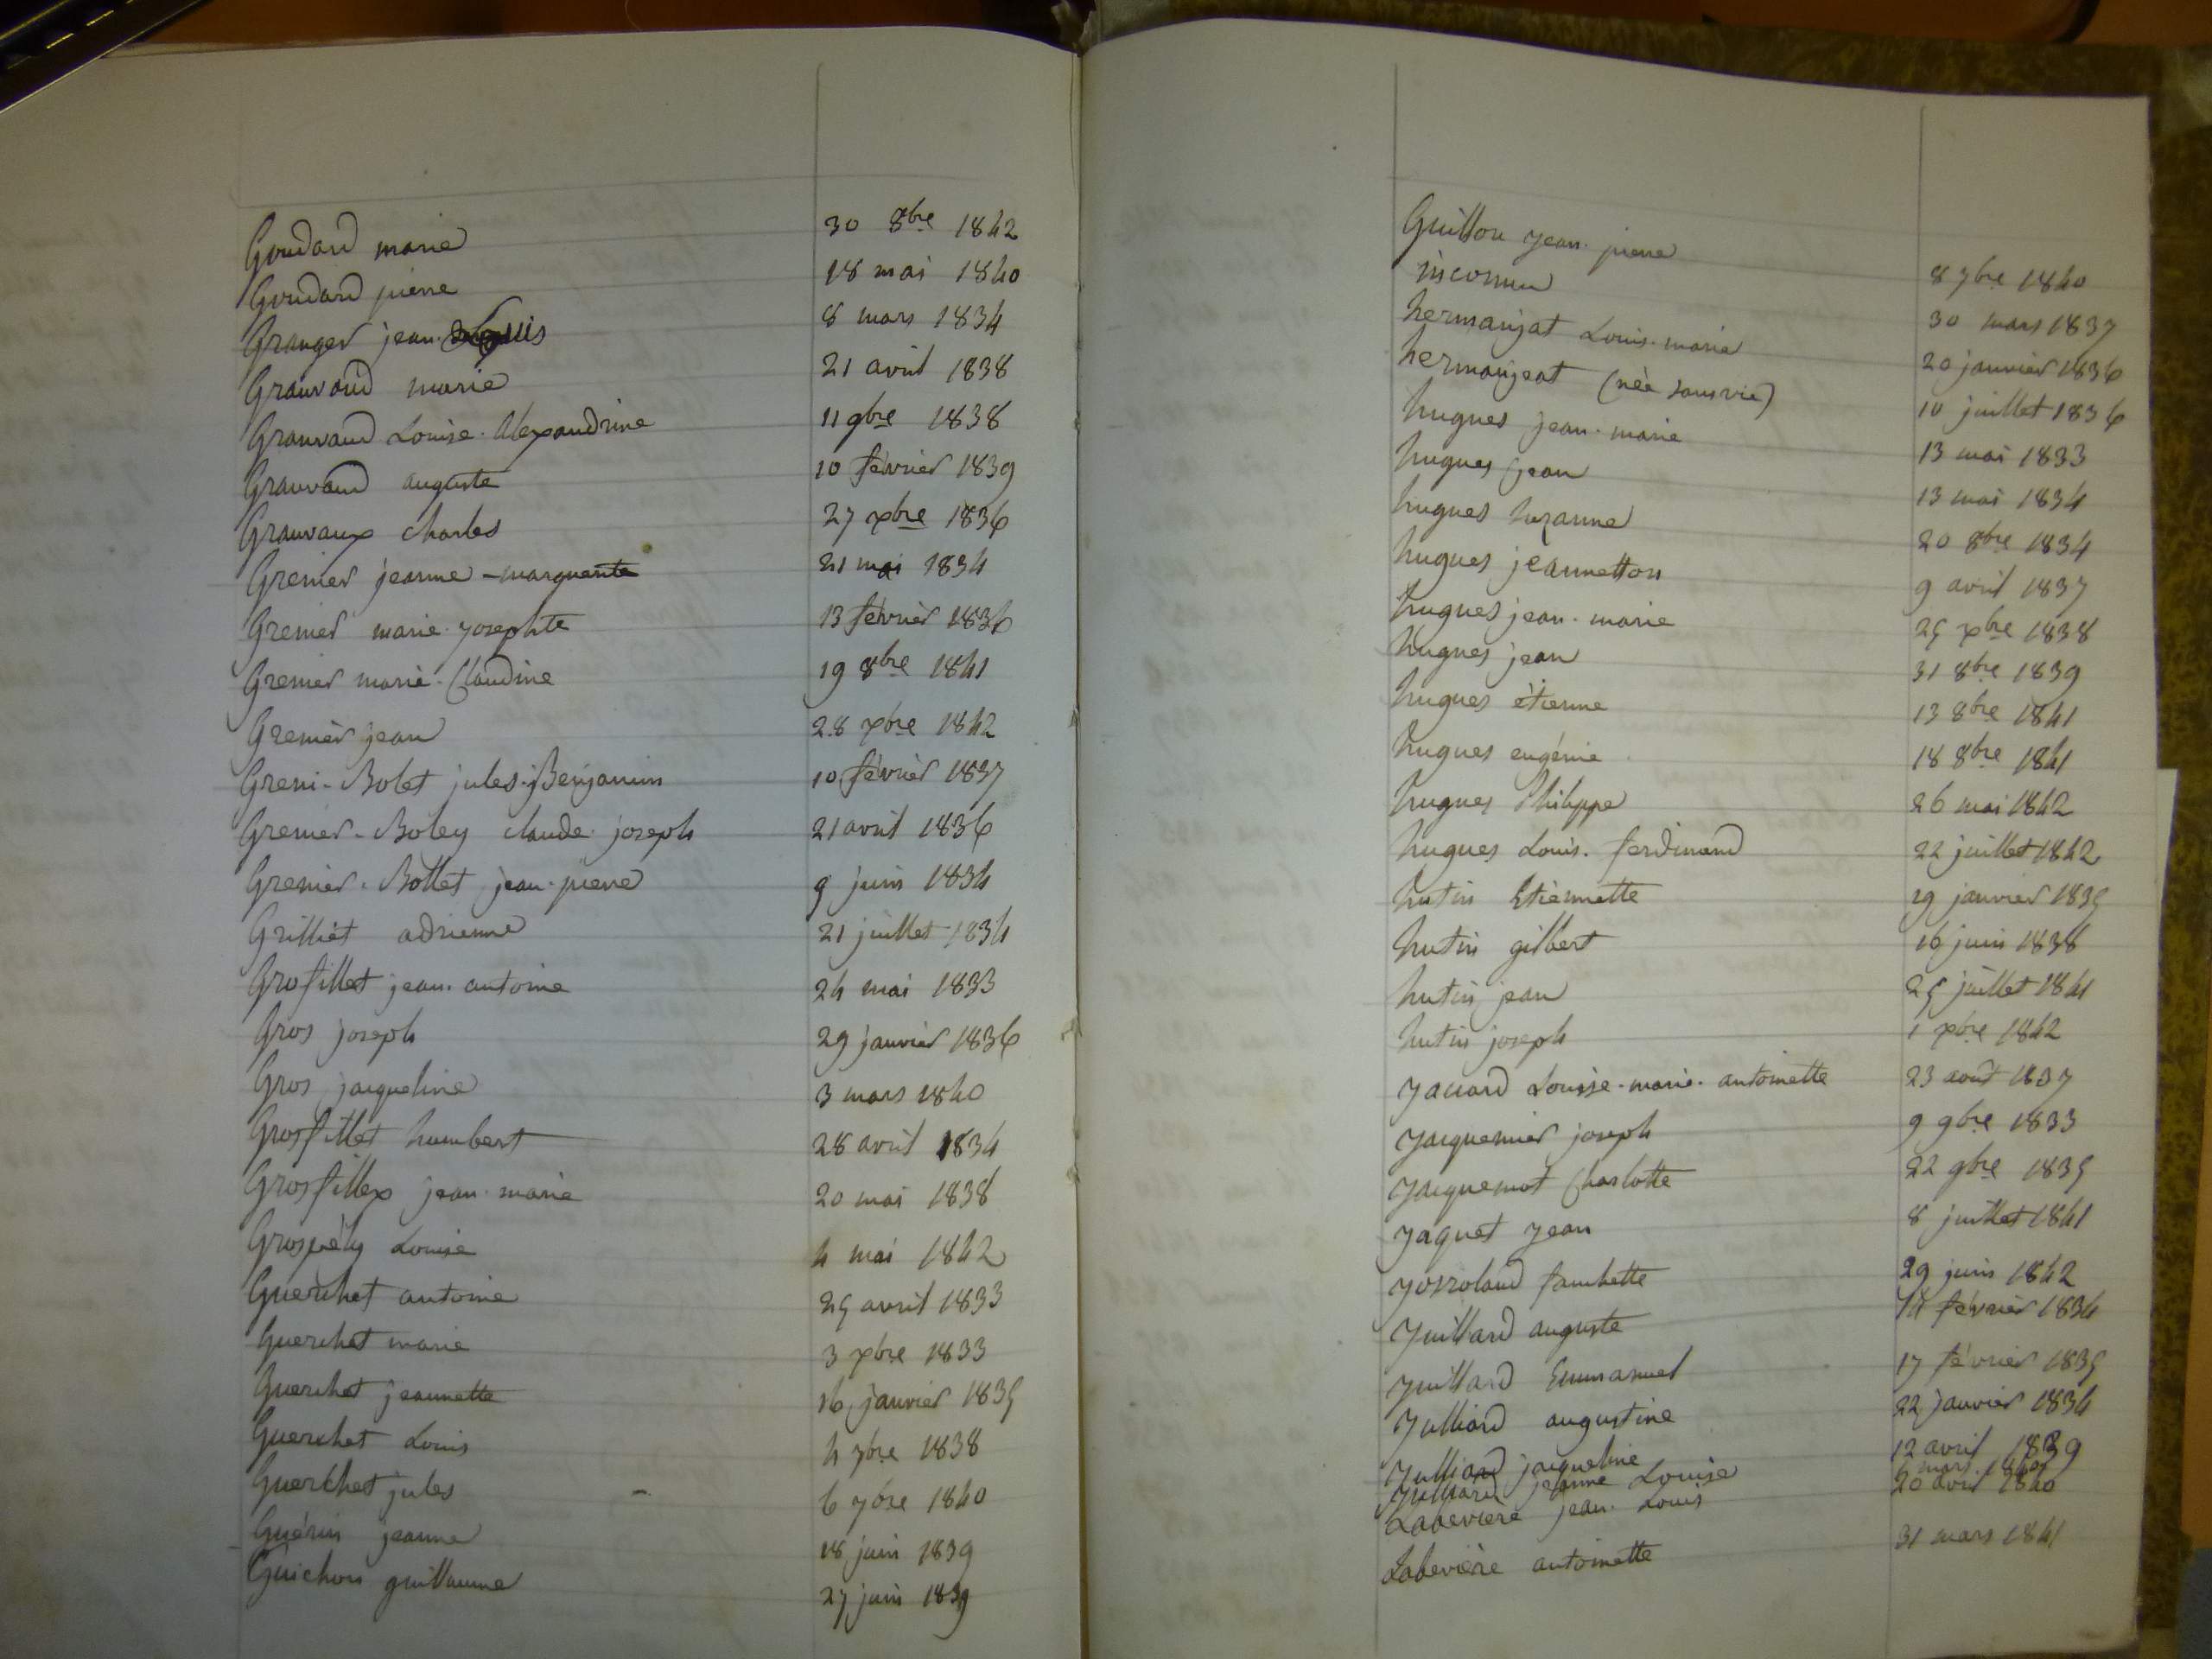 Goudard marie 30 8bre 1842
Goudard pierre 18 mai 1840
Granger jean Louis 8 mars 1834
Granvand marie 21 avril 1838
Granvand Louise Alexandrine 11 9bre 1838
Granvand auguste 10 février 1839
Granvaux charles 27 xbre 1836
Grenier jeanne - marguerite 21 mai 1834
Grenier marie josephte 13 février 1836
Grenier marie Claudine 19 8bre 1841
Grenier jean 28 xbre 1842
Greni-Bolet jules Benjamin 10 février 1837
Grenier-Boley claude joseph 21 avril 1836
Grenier-Bollet jean pierre 9 juin 1834
Grilliet adrienne 21 juillet 1834
Grofillet jean antoine 24 mai 1833
Gros joseph 29 janvier 1836
Gros jacqueline 3 mars 1840
Grosfillet humbert 28 avril 1834
Grosfillex jean marie 20 mai 1838
Louise 4 mai 1842
Guerchet antoine 25 avril 1833
Guerchet marie 3 xbre 1833
Guerchet jeannette 16 janvier 1835
Guerchet Louis 4 7bre 1838
Guerchet jules 6 7bre 1840
Guérin jeanne 18 juin 1839
Guichon guillaume 27 juin 1839
Guillon jean pierre 8 7bre 1840
inconnu 30 mars 1837
hermanjat Louis marie 20 janvier 1836
hermanjeat (née sans vie) 10 juillet 1836
hugues jean marie 13 mai 1833
hugues jean 13 mai 1834
hugues suzanne 20 8bre 1834
hugues jeannetton 9 avril 1837
hugues jean marie 25 xbre 1838
hugues jean 31 8bre 1839
hugues étienne 13 8bre 1841
hugues eugénie 18 8bre 1841
hugues Philippe 26 mai 1842
hugues Louis ferdinand 22 juillet 1842
hutin Etiennette 29 janvier 1835
hutin gilbert 16 juin 1838
hutin jean 25 juillet 1841
hutin joseph 1 xbre 1842
Jacard Louise marie antoinette 23 août 1837
Jacquemier joseph 9 9bre 1833
Jacquemot Charlotte 22 9bre 1835
Jaquet Jean 8 juillet 1841
Josroland fanchette 29 juin 1842
Juillard auguste 14 février 1834
Juillard Emmanuel 17 février 1835
Julliard augustine 22 janvier 1834
Julliard jacqueline 12 avril 1839
Julliard jeanne Louise mars 1840
Labeviere jean Louis 20 avril 1840
Labevière antoinette 31 mars 1841